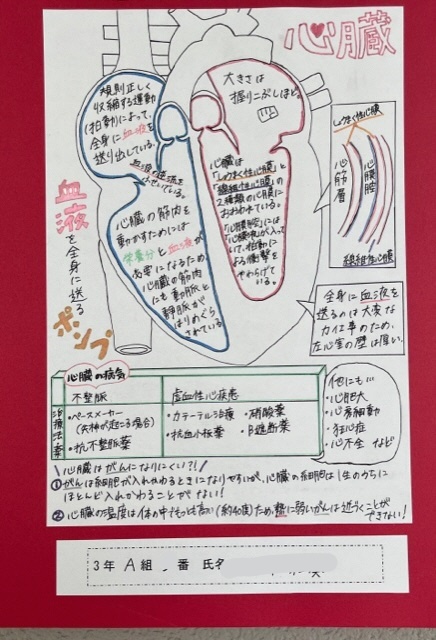 心臓
規則正しく
収縮する運動
(拍動)によって、
全身に血液を
送り出している。
大きさは
握りこぶしほど。
心臓の筋肉を
動かすためには
栄養分と血液が
必要になるため、
心臓の筋肉
にも動脈と
静脈が
はりめぐら
されている
心臓は
「しょうまく性心膜」と
「線維性心膜」の
2種類の心膜に
おおわれている。
「心膜腔」には
心膜液が入って
いて、拍動に
よる衝撃を
やわらげて
いる。
しょうまく性心膜
心筋層
心膜腔
線維性心膜
血液を全身に送る
ポンプ
全身に血液を
送るのは大変な
力仕事のため、
左心室の壁は厚い。
心臓の病気
不整脈
虚血性心疾患
治療法・薬
・ペースメーカー
(失神が起こる場合)
・抗不整脈薬
・カテーテル治療
・硝酸薬
・抗血小板薬
・β遮断薬
他にも…
・心肥大
・心房細動
・狭心症
・心不全 など
\心臓はがんになりにくい?!/
①がんは細胞が入れかわるときになりやすいが、心臓の細胞は1生のうちに
ほとんど入れかわることがない!
②心臓の温度は体の中でもっとも高い(約40度)ため、熱に弱いがんは近づくことが
できない!
3年 A 組 番 氏名